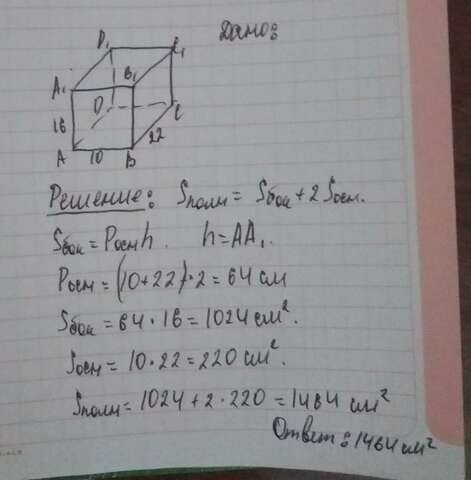 Дано:
D₁ C₁
A₁ B₁
D C
16 22
A 10 B
Решение: Sполн = Sбок + 2 Sосн.
Sбок = Pосн h. h = AA₁.
Pосн = (10+22)·2 = 64 см
Sбок = 64 · 16 = 1024 см².
Sосн = 10 · 22 = 220 см².
Sполн = 1024 + 2 · 220 = 1464 см²
Ответ: 1464 см²